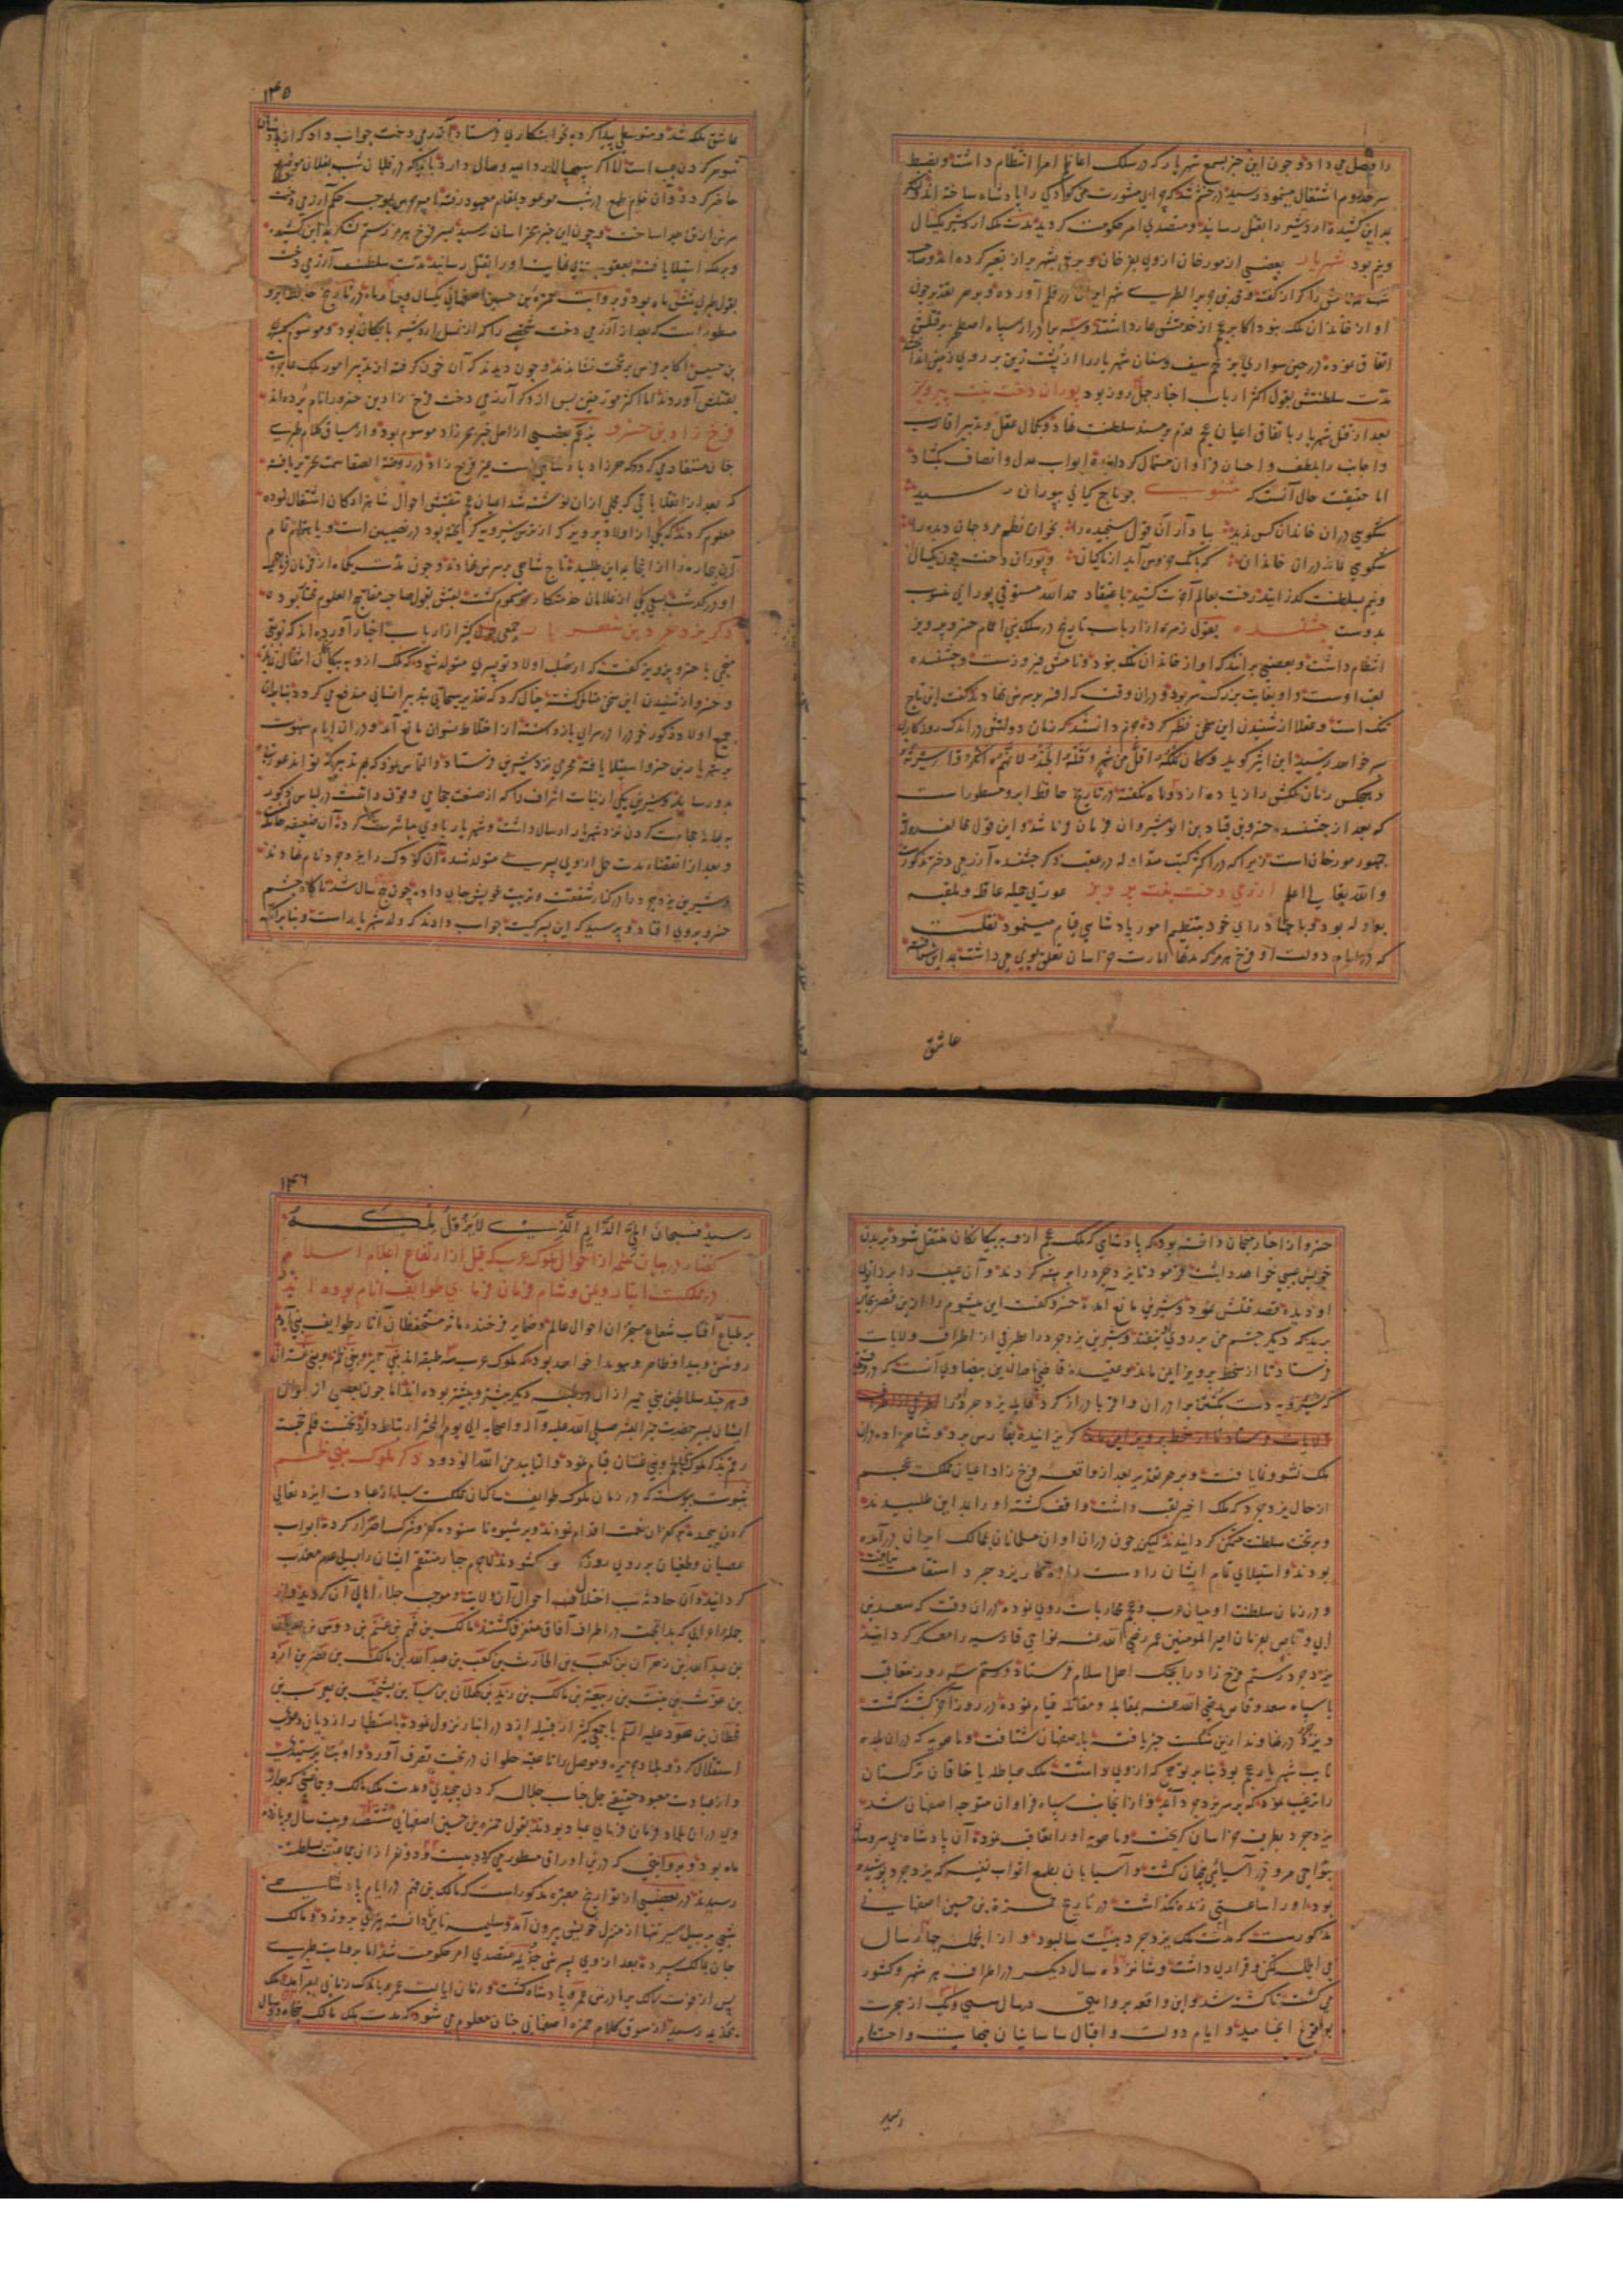 را فیصل می داد و چون این خبر بسمع شهریار که در سلک اعاظم امرا انتظام داشت و بضبط
سرحد روم اشتغال مینمود رسید در خشم شد که چرا بی مشورت من کودکی را پادشاه ساخته اند
بمداین کشیده اردشیر را بقتل رسانید و متصدی امر حکومت کردید مدت ملک اردشیر یکسال
و نیم بود شهریار بعضی از مورخان ازوی
او از خاندان ملک نبود اکابر عجم از خدمتش عار داشتند و سه برادر از سپاه اصطخر بر قتلش
اتفاق نموده در حین سواری بزخم سیف و سنان شهریار را از پشت زین بر روی زمین انداختند
مدت سلطنتش بقول اکثر ارباب اخبار چهل روز بود پوران دخت بنت پرویز
بعد از قتل شهریار باتفاق اعیان عجم قدم بر مسند سلطنت نهاد و بکمال عقل و تدبیر اقارب
و اجانب را بلطف و احسان فراوان مستمال کردانیده ابواب عدل و انصاف بکشاد
اما حقیقت حال آنست که مثنوی چو تاج کیانی بپوران رسید
شکوهی دران خاندان کس ندید بیاد آر آن قول سنجیده را بخوان نظم مرد جهان دیده را
شکوهی نماند دران خاندان که بانک خروس آید از ماکیان و پوران دخت چون یکسال
و نیم بسلطنت کذرانید رخت بعالم آخرت کشید باعتقاد حمدالله مستوفی پوران منسوب
بدوست جشنسده بقول زمره از ارباب تاریخ در سلک بنی اعمام خسرو پرویز
انتظام داشت و بعضی برانند که او از خاندان ملک نبود و نامش فیروزست و جشنسده
لقب اوست و او بغایت بزرک سر بود و دران وقت که افسر بر سرش نهادند کفت این تاج
تنک است و عقلا از شنیدن این سخن تطیر کرده جزم دانستند که زمان دولتش در اندک روزکاری
بسر خواهد رسید
و هیچکس زمان ملکش را زیاده از دو ماه نکفته در تاریخ حافظ ابرو مسطورست
که بعد از جشنسده خسرو بن قباد بن انوشیروان فرمان فرما شد و این قول مخالف
جمهور مورخان است زیرا که در اکثر کتب متداوله در عقب ذکر جشنسده آرزمی دخت مذکورست
والله تعالی اعلم ارزمی دخت بنت پرویز عورتی جمیله عاقله و بلقیه
بود و با
که در ایام دولت او فرخ هرمز که مدتها امارت خراسان تعلق بوی می داشت بمداین شتافته
عاشق
۱۴۵
عاشق ملکه شد و متوسطی پیدا کرده بخواستکاری فرستاد آزرمی دخت جواب داد که ازبادشاهان
شوهر کردن عیب است اما اکر سپهسالار داعیه وصال دارد باید که در فلان شب بفلان موضع
حاضر کردد و آن خام طمع در شب موعود بمقام معهود رفته امیر حرس بموجب حکم آزرمی دخت
سرش از تن جدا ساخت و چون این خبر بخراسان رسید پسر فرخ هرمز رستم لشکر بمداین کشیده
و بر ملکه استیلا یافته بعقوبتی بی نهایت او را بقتل رسانید مدت سلطنت آزرمی دخت
بقول طبری شش ماه بود و بروایت حمزه بن حسین اصفهانی یکسال و چهار ماه در تاریخ حافظ ابرو
مسطورست که بعد از آزرمی دخت شخصی را که از نسل اردشیر بابکان بود و موسوم بکسری
بن حسیس اکابر فرس بر تخت نشاندند و چون دیدند که آن خون کرفته از تدبیر امور ملک عاجزست
بقتلش آوردند اما اکثر مورخین پس از ذکر آزرمی دخت فرخ زاد بن خسرو را نام برده اند
فرخ زاد بن خسرو بزعم بعضی از اهل خبر بخرزاد موسوم بود و از سیاق کلام طبری
چنان مستفاد می کردد که
که بعد از انقلاباتی که مجملی ازان نوشته شد اعیان عجم بتفتیش احوال شاهزادکان اشتغال نموده
معلوم کردند که یکی از اولاد پرویز که از ترس شیرویه کریخته بود در نصیبین است
آن بیچاره را از انجا بمداین طلبیده تاج شاهی بر سرش نهادند و چون مدت یکماه از فرمان فرمایی
او در کذشت بسعی یکی از غلامان
ذکر یزدجرد بن شهریار جمعی کثیر از ارباب اخبار آورده اند که نوبتی
منجمی با خسرو پرویز کفت که از صلب اولاد تو پسری متولد شود که ملک ازو به بیکانکان انتقال
و خسرو از شنیدن این سخن متألم کشته خیال کرد که تقدیر سبحانی بتدبیر انسانی مندفع می کردد بنابران
جمیع اولاد ذکور خود را در سرای بازداشته از اختلاط نسوان مانع آمد و دران ایام شهوت
بر شهریار بن خسرو استیلا یافته محرمی نزد شیرین فرستاد و التماس نمود که بهر تدبیر که تواند عورتی
بدو رساند و شیرین یکی از بنات اشراف را که از صنعت حجامی وقوف داشت در لباس ذکور
به بهانه حجامت کردن نزد شهریار ارسال داشت و شهریار با وی مباشرت کرده آن ضعیفه حامله
و بعد از انقضاء مدت حمل ازوی پسری متولد شده آن کودک را یزدجرد نام نهادند
و شیرین یزدجرد را در کنار شفقت و تربیت خویش جای داد چون پنج سال شد ناکاه چشم
خسرو بروی افتاد و پرسید که این پسر کیست جواب دادند که ولد شهریار است و بنابر آنکه
خسرو از اخبار منجمان دانسته بود که پادشاهی که ملک عجم ازو به بیکانکان منتقل شود بر بدن
خویش عیبی خواهد داشت فرمود تا یزدجرد را برهنه کردند و آن عیب را بر زانوی
او دیده قصد قتلش نمود و شیرین مانع آمده خسرو کفت این میشوم را ازین قصر بجایی
برید که دیکر چشم من بروی نیفتد و شیرین یزدجرد را بطرفی از اطراف ولایات
فرستاد تا از سخط پرویز ایمن ماند و عقیده قاضی ناصرالدین بیضاوی آنست که در وقتی
که شیرویه دست بکشتن برادران و اقربا دراز کرد دایه یزدجرد او را بطرفی از اطراف
ولایات فرستاد تا از سخط پرویز ایمن ماند کریزانیده بفارس برد و شاهزاده دران
ملک نشو و نما یافت و بر هر تقدیر بعد از واقعه فرخ زاد اعیان مملکت عجم
از حال یزدجرد که ملک اخیر لقب داشت واقف کشته او را بمداین طلبیدند
و بر تخت سلطنت متمکن کردانیدند لیکن چون دران اوان مسلمانان بممالک ایران درآمده
بودند و استیلای تمام ایشان را دست داده کار یزدجرد استقامت نیافت
و در زمان سلطنت او میان عرب و عجم محاربات روی نموده دران وقت که سعد بن
ابی وقاص بفرمان امیر المومنین عمر رضی الله عنه نواحی قادسیه را معسکر کردانید
یزدجرد رستم فرخ زاد را بجنک اهل اسلام فرستاد و رستم سه روز متعاقب
با سپاه سعد وقاص رضی الله عنه بمقابله و مقاتله قیام نموده در روز آخر کشته کشت
و یزدجرد در نهاوند ازین شکست خبر یافته باصفهان شتافت و ماهویه که دران بلده
نایب شهریار عجم بود بنابر توهمی که ازوی داشت ملک هیاطله یا خاقان ترکستان
را ترغیب نمود که بر سر یزدجرد آید و از انجانب سپاه فراوان متوجه اصفهان شد
یزدجرد بطرف خراسان کریخت و ماهویه او را تعاقب نموده آن پادشاه بی سر و سامان
بنواحی مرو در آسیائی پنهان کشت و آسیابان بطمع اثواب نفیسه که یزدجرد پوشیده
بود او را ساعتی زنده نکذاشت در تاریخ حمزه بن حسین اصفهانی
مذکورست که مدت ملک یزدجرد بیست سال بود و از انجمله چهار سال
فی الجمله تمکن و قراری داشت و شانزده سال دیکر در اطراف هر شهر و کشور
می کشت تا کشته شد و این واقعه بروایتی در سال سی و یک از هجرت
بوقوع انجامید و ایام دولت و اقبال ساسانیان بنهایت و اختتام
رسید
۱۴۶
رسید فسبحان الحی الدایم الذی لا یزول ملکه
کفتار در بیان شمه از احوال ملوک عرب که قبل از ارتفاع اعلام اسلام
در مملکت انبار و یمن و شام فرمان فرمای طوایف انام بوده اند
بر طباع آفتاب شعاع مخبران احوال عالم و ضمایر فرخنده مآثر مستحفظان آثار طوایف بنی آدم
روشن و پیدا و ظاهر و هویدا خواهد بود که ملوک عرب سه طبقه اند بنی حمیر و بنی لخم و بنی غسان
و هر چند سلاطین بنی حمیر ازان دو طبقه دیکر پیشتر و بیشتر بوده اند اما چون بعضی از احوال
ایشان بسیر حضرت خیر البشر صلی الله علیه و آله و اصحابه الی یوم المحشر ارتباط دارد نخست قلم خجسته
رقم بذکر ملوک بنی لخم و بنی غسان قیام نمود و التایید من الله الودود ذکر ملوک بنی لخم
بثبوت پیوسته که در زمان ملوک طوایف ساکنان مملکت سبا از عبادت ایزد تعالی
کردن پیچیده بر کفران نعمت اقدام نمودند و بر شیوه ناستوده کفر و شرک اصرار کرده ابواب
عصیان و طغیان بر روی روزکار خود کشودند لاجرم جبار منتقم ایشان را بسیل عرم معذب
کردانید و آن حادثه سبب اختلاف احوال آن ولایت و موجب جلاء اهالی آن کردید و از
جمله اهالی که بدانجهت در اطراف آفاق متفرق کشتند مالک بن فهم بن غنم بن دوس بن عدنان
بن عبدالله بن زهران بن کعب بن الحارث بن کعب بن عبدالله بن مالک بن نضر بن ازد
بن غوث بن نبت بن مالک بن زید بن کهلان بن سبا بن یشجب بن یعرب بن
قحطان بن هود علیه السلم با جمعی کثیر از قبیله ازد در انبار نزول نموده
استقلال کرد و بلاد جزیره و موصل را تا عقبه حلوان در تحت تصرف آورد و او بت پرستیدی
و از عبادت معبود حقیقی جل جناب جلاله کردن پیچیدی و مدت ملک مالک و جماعتی که بعد از
وی دران بلاد فرمان فرمای عباد بودند بقول حمزه بن حسین اصفهانی ششصد و بیست سال و یازده
ماه بود و بروایتی که درین اوراق مسطور می کردد بیست و دو نفر ازان جماعت بسلطنت
رسیدند در بعضی از تواریخ معتبره مذکورست که مالک بن فهم در ایام پادشاهی
شبی بر سبیل سیر تنها از منزل خویش بیرون آمد و سلیمه نامی نادانسته تیری بر وی زد و مالک
جان بمالک سپرده بعد ازوی پسرش جذیمه متصدی امر حکومت شد اما بروایت طبری
پس از فوت مالک برادرش عمرو پادشاه کشت و زمان ایالت عمرو باندک زمانی بسر آمد و ملک
بجذیمه رسید از سوق کلام حمزه اصفهانی چنان معلوم می شود که مدت ملک مالک پنجاه و دو سال